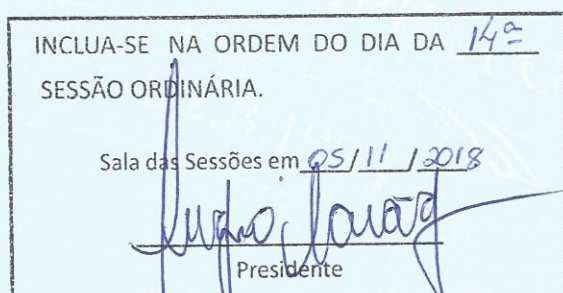 INCLUA-SE NA ORDEM DO DIA DA 14ª
SESSÃO ORDINÁRIA.
Sala das Sessões em 05/11/2018
Presidente